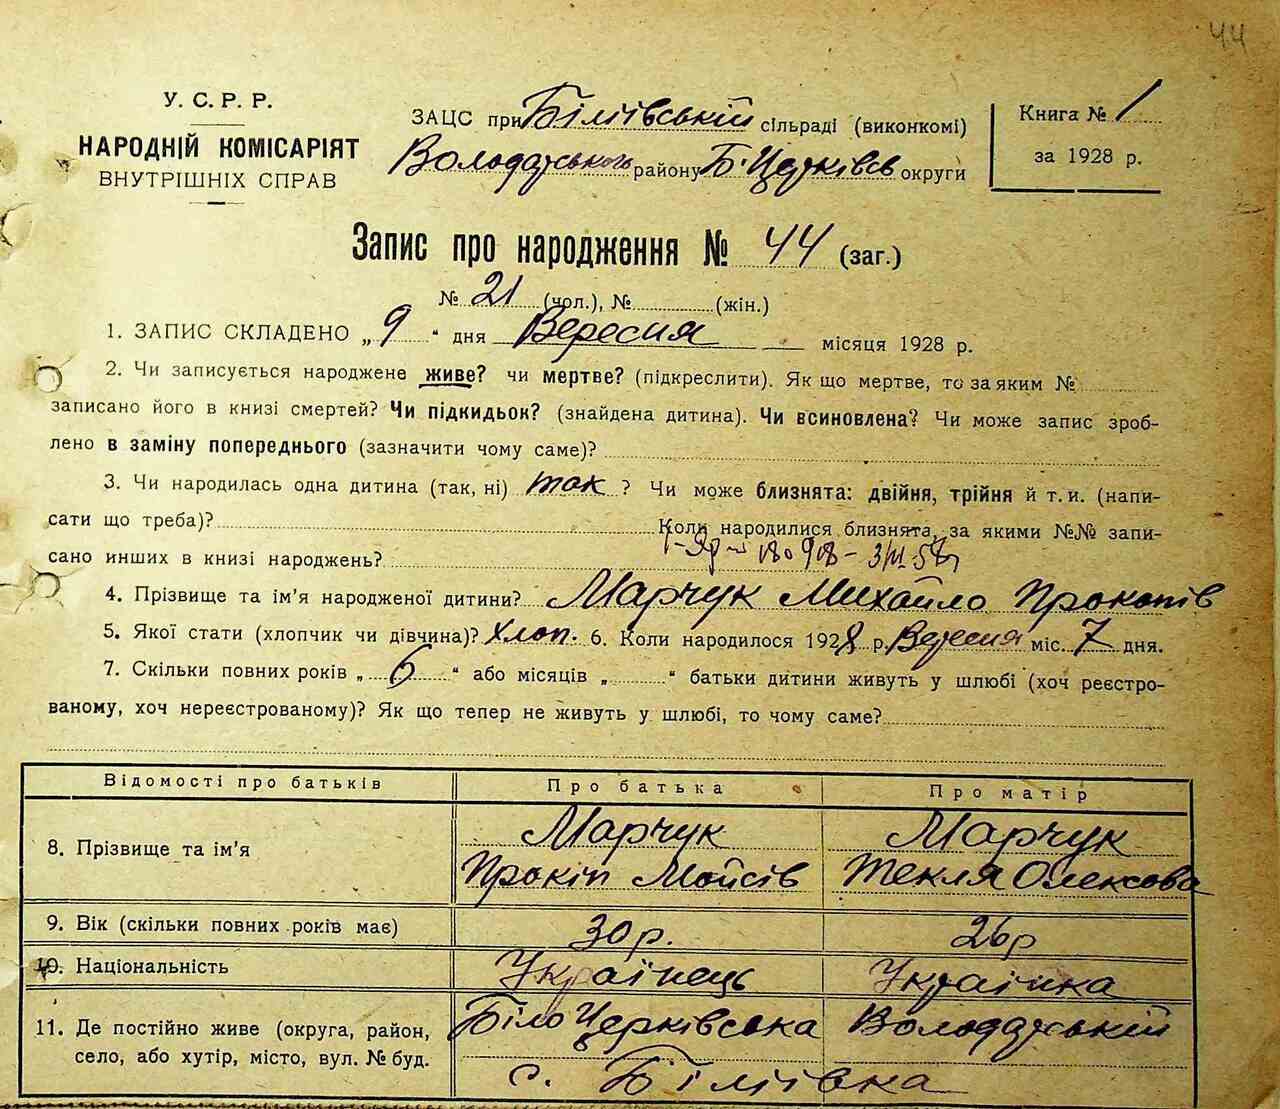 44
У. С. Р. Р.
НАРОДНІЙ КОМІСАРІЯТ
ВНУТРІШНІХ СПРАВ
ЗАЦС при Біліївській сільраді (виконкомі)
Володарського району Б-Церківсь округи
Книга № 1
за 1928 р.
Запис про народження № 44 (заг.)
№ 21 (чол.), № (жін.)
1. ЗАПИС СКЛАДЕНО „ 9 “ дня Вересня місяця 1928 р.
2. Чи записується народжене живе? чи мертве? (підкреслити). Як що мертве, то за яким №
записано його в книзі смертей? Чи підкидьок? (знайдена дитина). Чи всиновлена? Чи може запис зроб-
лено в заміну попереднього (зазначити чому саме)?
3. Чи народилась одна дитина (так, ні) так ? Чи може близнята: двійня, трійня й т. и. (напи-
сати що треба)? Коли народилися близнята, за якими №№ запи-
сано инших в книзі народжень?
4. Прізвище та ім’я народженої дитини? Марчук Михайло Прокопів
5. Якої стати (хлопчик чи дівчина)? Хлоп. 6. Коли народилося 1928 р. Вересня міс. 7 дня.
7. Скільки повних років „ 6 “ або місяців „ “ батьки дитини живуть у шлюбі (хоч реєстро-
ваному, хоч нереєстрованому)? Як що тепер не живуть у шлюбі, то чому саме?
Відомості про батьків Про батька Про матір
8. Прізвище та ім’я Марчук Марчук
Прокіп Мойсів Текля Олексова
9. Вік (скільки повних років має) 30 р. 26 р
10. Національність Українець Українка
11. Де постійно живе (округа, район, Біло Церківська Володарській
село, або хутір, місто, вул. № буд. с. Біліївка